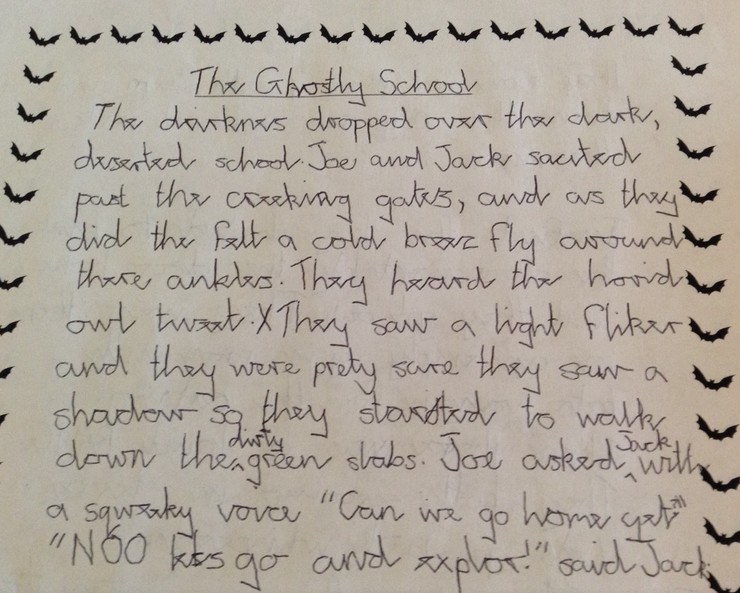 The Ghostly School
The darknes dropped over the dark,
deserted school. Joe and Jack sacuted
past the creeking gates, and as they
did the felt a cold breez fly around
there ankles. They heard the horid
owl tweet. X They saw a light fliker
and they were prety sure they saw a
shadow so they standted to walk
down the dirty green slabs. Joe asked Jack with
a sqweeky voice "Can we go home yet?"
"NOO lets go and explor!" said Jack